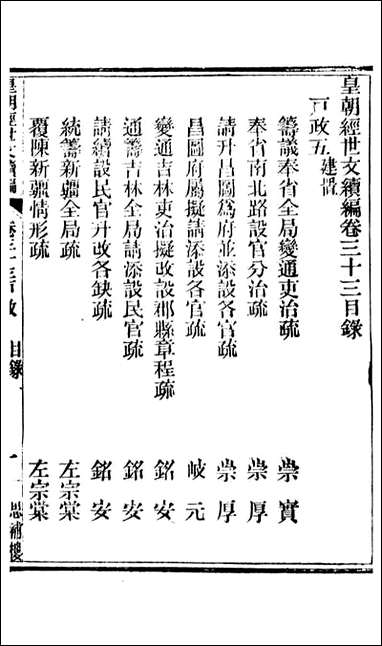 皇朝經世文續編卷三十三目錄
戶政五建置
籌議奉省全局變通吏治疏 崇實
奉省南北路設官分治疏 崇厚
請升昌圖為府並添設各官疏 崇厚
昌圖府屬擬請添設各官疏 岐元
變通吉林吏治擬改設郡縣章程疏 銘安
通籌吉林全局請添設民官疏 銘安
請續設民官升改各缺疏 銘安
統籌新疆全局疏 左宗棠
覆陳新疆情形疏 左宗棠
皇朝經世文續編 卷三十三 戶政 目錄 一 思補樓